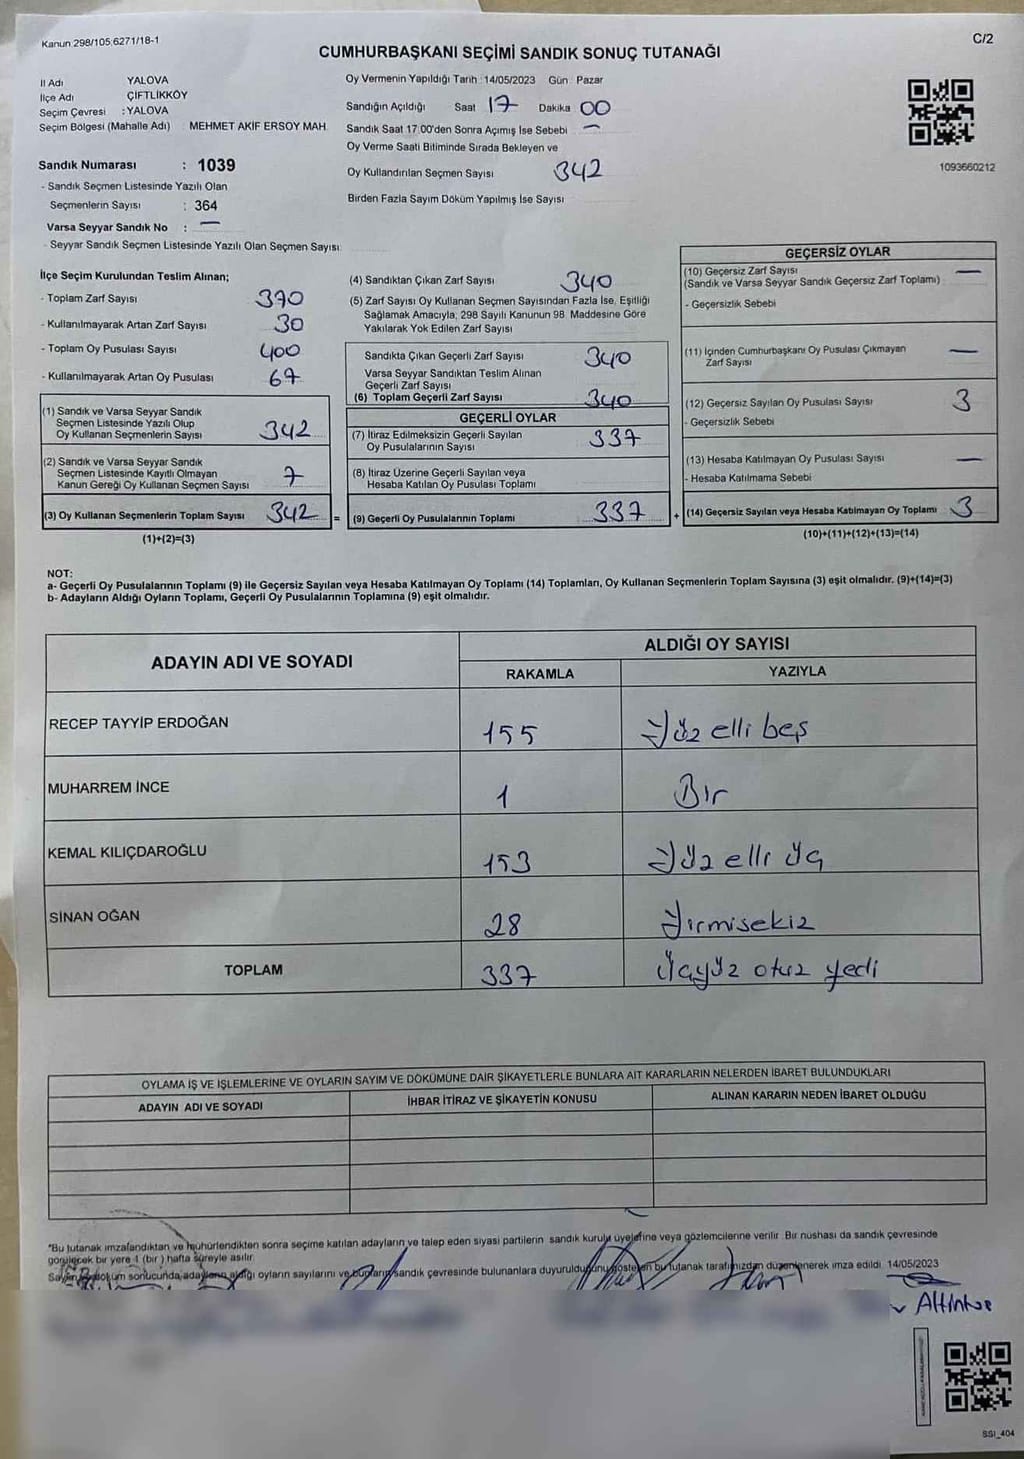 Kanun 298/105,6271/18-1
C/2
CUMHURBAŞKANI SEÇİMİ SANDIK SONUÇ TUTANAĞI
İl Adı YALOVA
İlçe Adı ÇİFTLİKKÖY
Seçim Çevresi : YALOVA
Seçim Bölgesi (Mahalle Adı) MEHMET AKİF ERSOY MAH.
Sandık Numarası : 1039
- Sandık Seçmen Listesinde Yazılı Olan
Seçmenlerin Sayısı : 364
Varsa Seyyar Sandık No : —
- Seyyar Sandık Seçmen Listesinde Yazılı Olan Seçmen Sayısı:
Oy Vermenin Yapıldığı Tarih : 14/05/2023 Gün : Pazar
Sandığın Açıldığı Saat 17 Dakika 00
Sandık Saat 17.00'den Sonra Açımış İse Sebebi —
Oy Verme Saati Bitiminde Sırada Bekleyen ve
Oy Kullandırılan Seçmen Sayısı 342
Birden Fazla Sayım Döküm Yapılmış İse Sayısı
1093660212
İlçe Seçim Kurulundan Teslim Alınan;
- Toplam Zarf Sayısı 370
- Kullanılmayarak Artan Zarf Sayısı 30
- Toplam Oy Pusulası Sayısı 400
- Kullanılmayarak Artan Oy Pusulası 67
(1) Sandık ve Varsa Seyyar Sandık
Seçmen Listesinde Yazılı Olup
Oy Kullanan Seçmenlerin Sayısı 342
(2) Sandık ve Varsa Seyyar Sandık
Seçmen Listesinde Kayıtlı Olmayan
Kanun Gereği Oy Kullanan Seçmen Sayısı 7
(3) Oy Kullanan Seçmenlerin Toplam Sayısı 342 =
(1)+(2)=(3)
(4) Sandıktan Çıkan Zarf Sayısı 340
(5) Zarf Sayısı Oy Kullanan Seçmen Sayısından Fazla İse, Eşitliği
Sağlamak Amacıyla, 298 Sayılı Kanunun 98. Maddesine Göre
Yakılarak Yok Edilen Zarf Sayısı
Sandıkta Çıkan Geçerli Zarf Sayısı 340
Varsa Seyyar Sandıktan Teslim Alınan
Geçerli Zarf Sayısı
(6) Toplam Geçerli Zarf Sayısı 340
GEÇERLİ OYLAR
(7) İtiraz Edilmeksizin Geçerli Sayılan
Oy Pusulalarının Sayısı 337
(8) İtiraz Üzerine Geçerli Sayılan veya
Hesaba Katılan Oy Pusulası Toplamı
(9) Geçerli Oy Pusulalarının Toplamı 337 +
GEÇERSİZ OYLAR
(10) Geçersiz Zarf Sayısı —
(Sandık ve Varsa Seyyar Sandık Geçersiz Zarf Toplamı)
- Geçersizlik Sebebi
(11) İçinden Cumhurbaşkanı Oy Pusulası Çıkmayan
Zarf Sayısı —
(12) Geçersiz Sayılan Oy Pusulası Sayısı 3
- Geçersizlik Sebebi
(13) Hesaba Katılmayan Oy Pusulası Sayısı —
- Hesaba Katılmama Sebebi
(14) Geçersiz Sayılan veya Hesaba Katılmayan Oy Toplamı 3
(10)+(11)+(12)+(13)=(14)
NOT:
a- Geçerli Oy Pusulalarının Toplamı (9) ile Geçersiz Sayılan veya Hesaba Katılmayan Oy Toplamı (14) Toplamları, Oy Kullanan Seçmenlerin Toplam Sayısına (3) eşit olmalıdır. (9)+(14)=(3)
b- Adayların Aldığı Oyların Toplamı, Geçerli Oy Pusulalarının Toplamına (9) eşit olmalıdır.
ADAYIN ADI VE SOYADI
ALDIĞI OY SAYISI
RAKAMLA YAZIYLA
RECEP TAYYİP ERDOĞAN 155 Yüz elli beş
MUHARREM İNCE 1 Bir
KEMAL KILIÇDAROĞLU 153 Yüz elli üç
SİNAN OĞAN 28 Yirmisekiz
TOPLAM 337 Üçyüz otuz yedi
OYLAMA İŞ VE İŞLEMLERİNE VE OYLARIN SAYIM VE DÖKÜMÜNE DAİR ŞİKAYETLERLE BUNLARA AİT KARARLARIN NELERDEN İBARET BULUNDUKLARI
ADAYIN ADI VE SOYADI İHBAR İTİRAZ VE ŞİKAYETİN KONUSU ALINAN KARARIN NEDEN İBARET OLDUĞU
*Bu tutanak imzalandıktan ve mühürlendikten sonra seçime katılan adayların ve talep eden siyasi partilerin sandık kurulu üyelerine veya gözlemcilerine verilir. Bir nüshası da sandık çevresinde
görülecek bir yere 1 (bir) hafta süreyle asılır.
Sayım döküm sonucunda, adayların aldığı oyların sayılarını ve bunların sandık çevresinde bulunanlara duyurulduğunu gösteren bu tutanak tarafımızdan düzenlenerek imza edildi. 14/05/2023
SSI_404